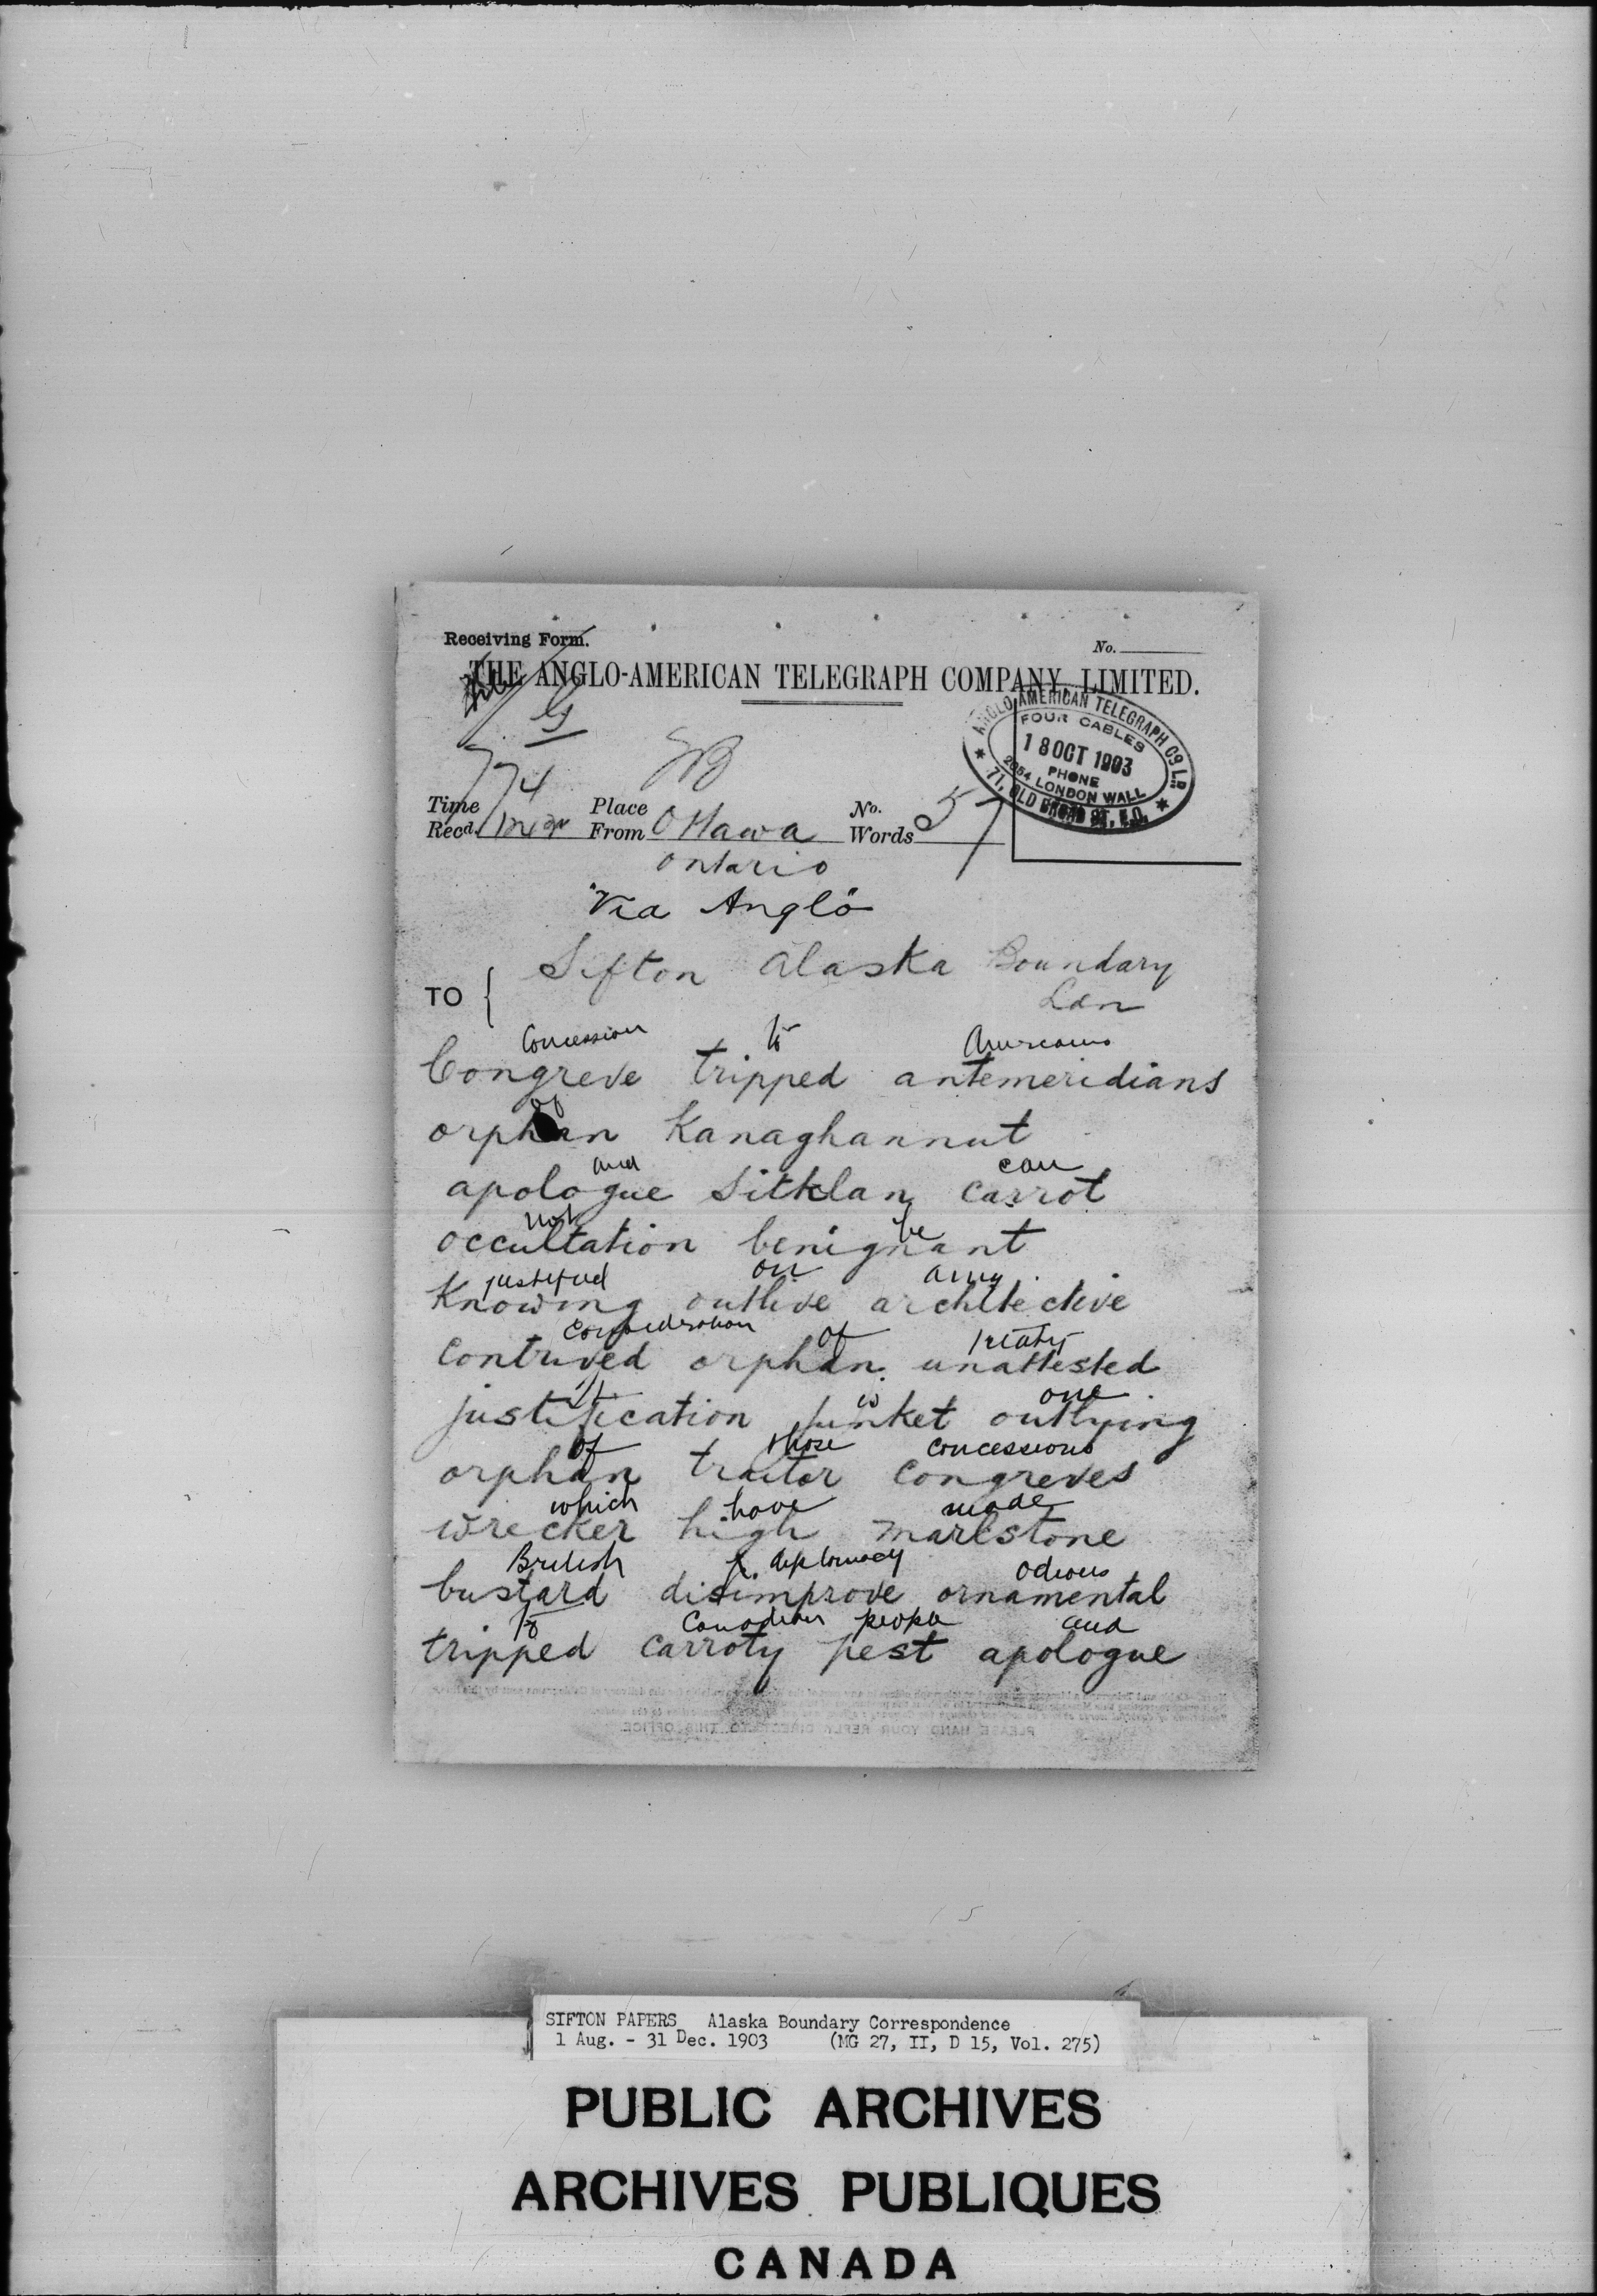 Receiving Form.
No.
THE ANGLO-AMERICAN TELEGRAPH COMPANY, LIMITED.
ANGLO AMERICAN TELEGRAPH CO. LD.
FOUR CABLES
18 OCT 1903
PHONE
2054 LONDON WALL
71, OLD BROAD ST, E.C.
Time Recd. Place From Ottawa No. Words 57
Ontario
Via Anglo
TO Sifton Alaska Boundary
Ldn
Concession to Americans
Congreve tripped antemeridians
of
orphan Kanaghannut
and can
apologue Sitklan carrot
not be
occultation benignant
justified on any
Knowing outlive architective
consideration of treaty
contrived orphan unattested
it is one
justification junket outlying
of those concessions
orphan traitor congreves
which have made
wrecker high marlstone
British diplomacy odious
bustard disimprove ornamental
to Canadian people and
tripped carroty pest apologue
PLEASE HAND YOUR REPLY DIRECT TO THIS OFFICE.
SIFTON PAPERS Alaska Boundary Correspondence
1 Aug. - 31 Dec. 1903 (MG 27, II, D 15, Vol. 275)
PUBLIC ARCHIVES
ARCHIVES PUBLIQUES
CANADA